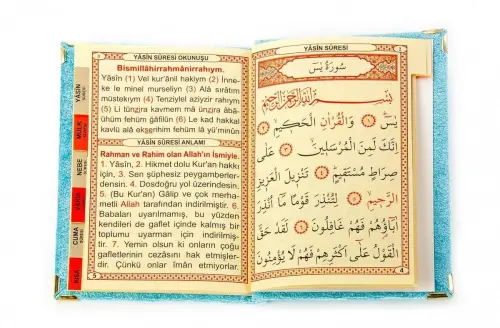 YÂSÎN SÛRESİ OKUNUŞU
Bismillâhirrahmânirrahıym.
Yâsîn (1) Vel kur'ânil hakiym (2) İnne-
ke le minel murseliyn (3) Alâ sırâtım
müstekıym (4) Tenziylel aziyzir rahıym
(5) Li tünzira kavmem mâ ünzira âbâ-
ühüm fehüm ğâfilûn (6) Le kad hakkal
kavlü alâ ekserihim fehüm lâ yü'minûn
YÂSÎN SÛRESİ ANLAMI
Rahman ve Rahim olan Allah'ın İsmiyle.
1. Yâsîn, 2. Hikmet dolu Kur'an hakkı
için, 3. Sen şüphesiz peygamberler-
densin. 4. Dosdoğru yol üzerindesin.
5. (Bu Kur'an) Gâlip ve çok merha-
metli Allah tarafından indirilmiştir. 6.
Babaları uyarılmamış, bu yüzden
kendileri de gaflet içinde kalmış bir
toplumu uyarman için indirilmiş-
tir. 7. Yemin olsun ki onların çoğu
gafletlerinin cezâsını hak etmişler-
dir. Çünkü onlar îmân etmiyorlar.
5
YÂSÎN
MÜLK
NEBE
CUMA
YÂSÎN SÛRESİ
سُورَةُ يٰسٓ
بِسْمِ اللّٰهِ الرَّحْمٰنِ الرَّحِيمِ
يٰسٓ ﴿١﴾ وَالْقُرْاٰنِ الْحَكِيمِ ﴿٢﴾
اِنَّكَ لَمِنَ الْمُرْسَلِينَ ﴿٣﴾ عَلٰى
صِرَاطٍ مُسْتَقِيمٍ ﴿٤﴾ تَنْزِيلَ الْعَزِيزِ
الرَّحِيمِ ﴿٥﴾ لِتُنْذِرَ قَوْمًا مَٓا اُنْذِرَ
اٰبَٓاؤُ۬هُمْ فَهُمْ غَافِلُونَ ﴿٦﴾ لَقَدْ حَقَّ
الْقَوْلُ عَلٰٓى اَكْثَرِهِمْ فَهُمْ لَا يُؤْمِنُونَ
4